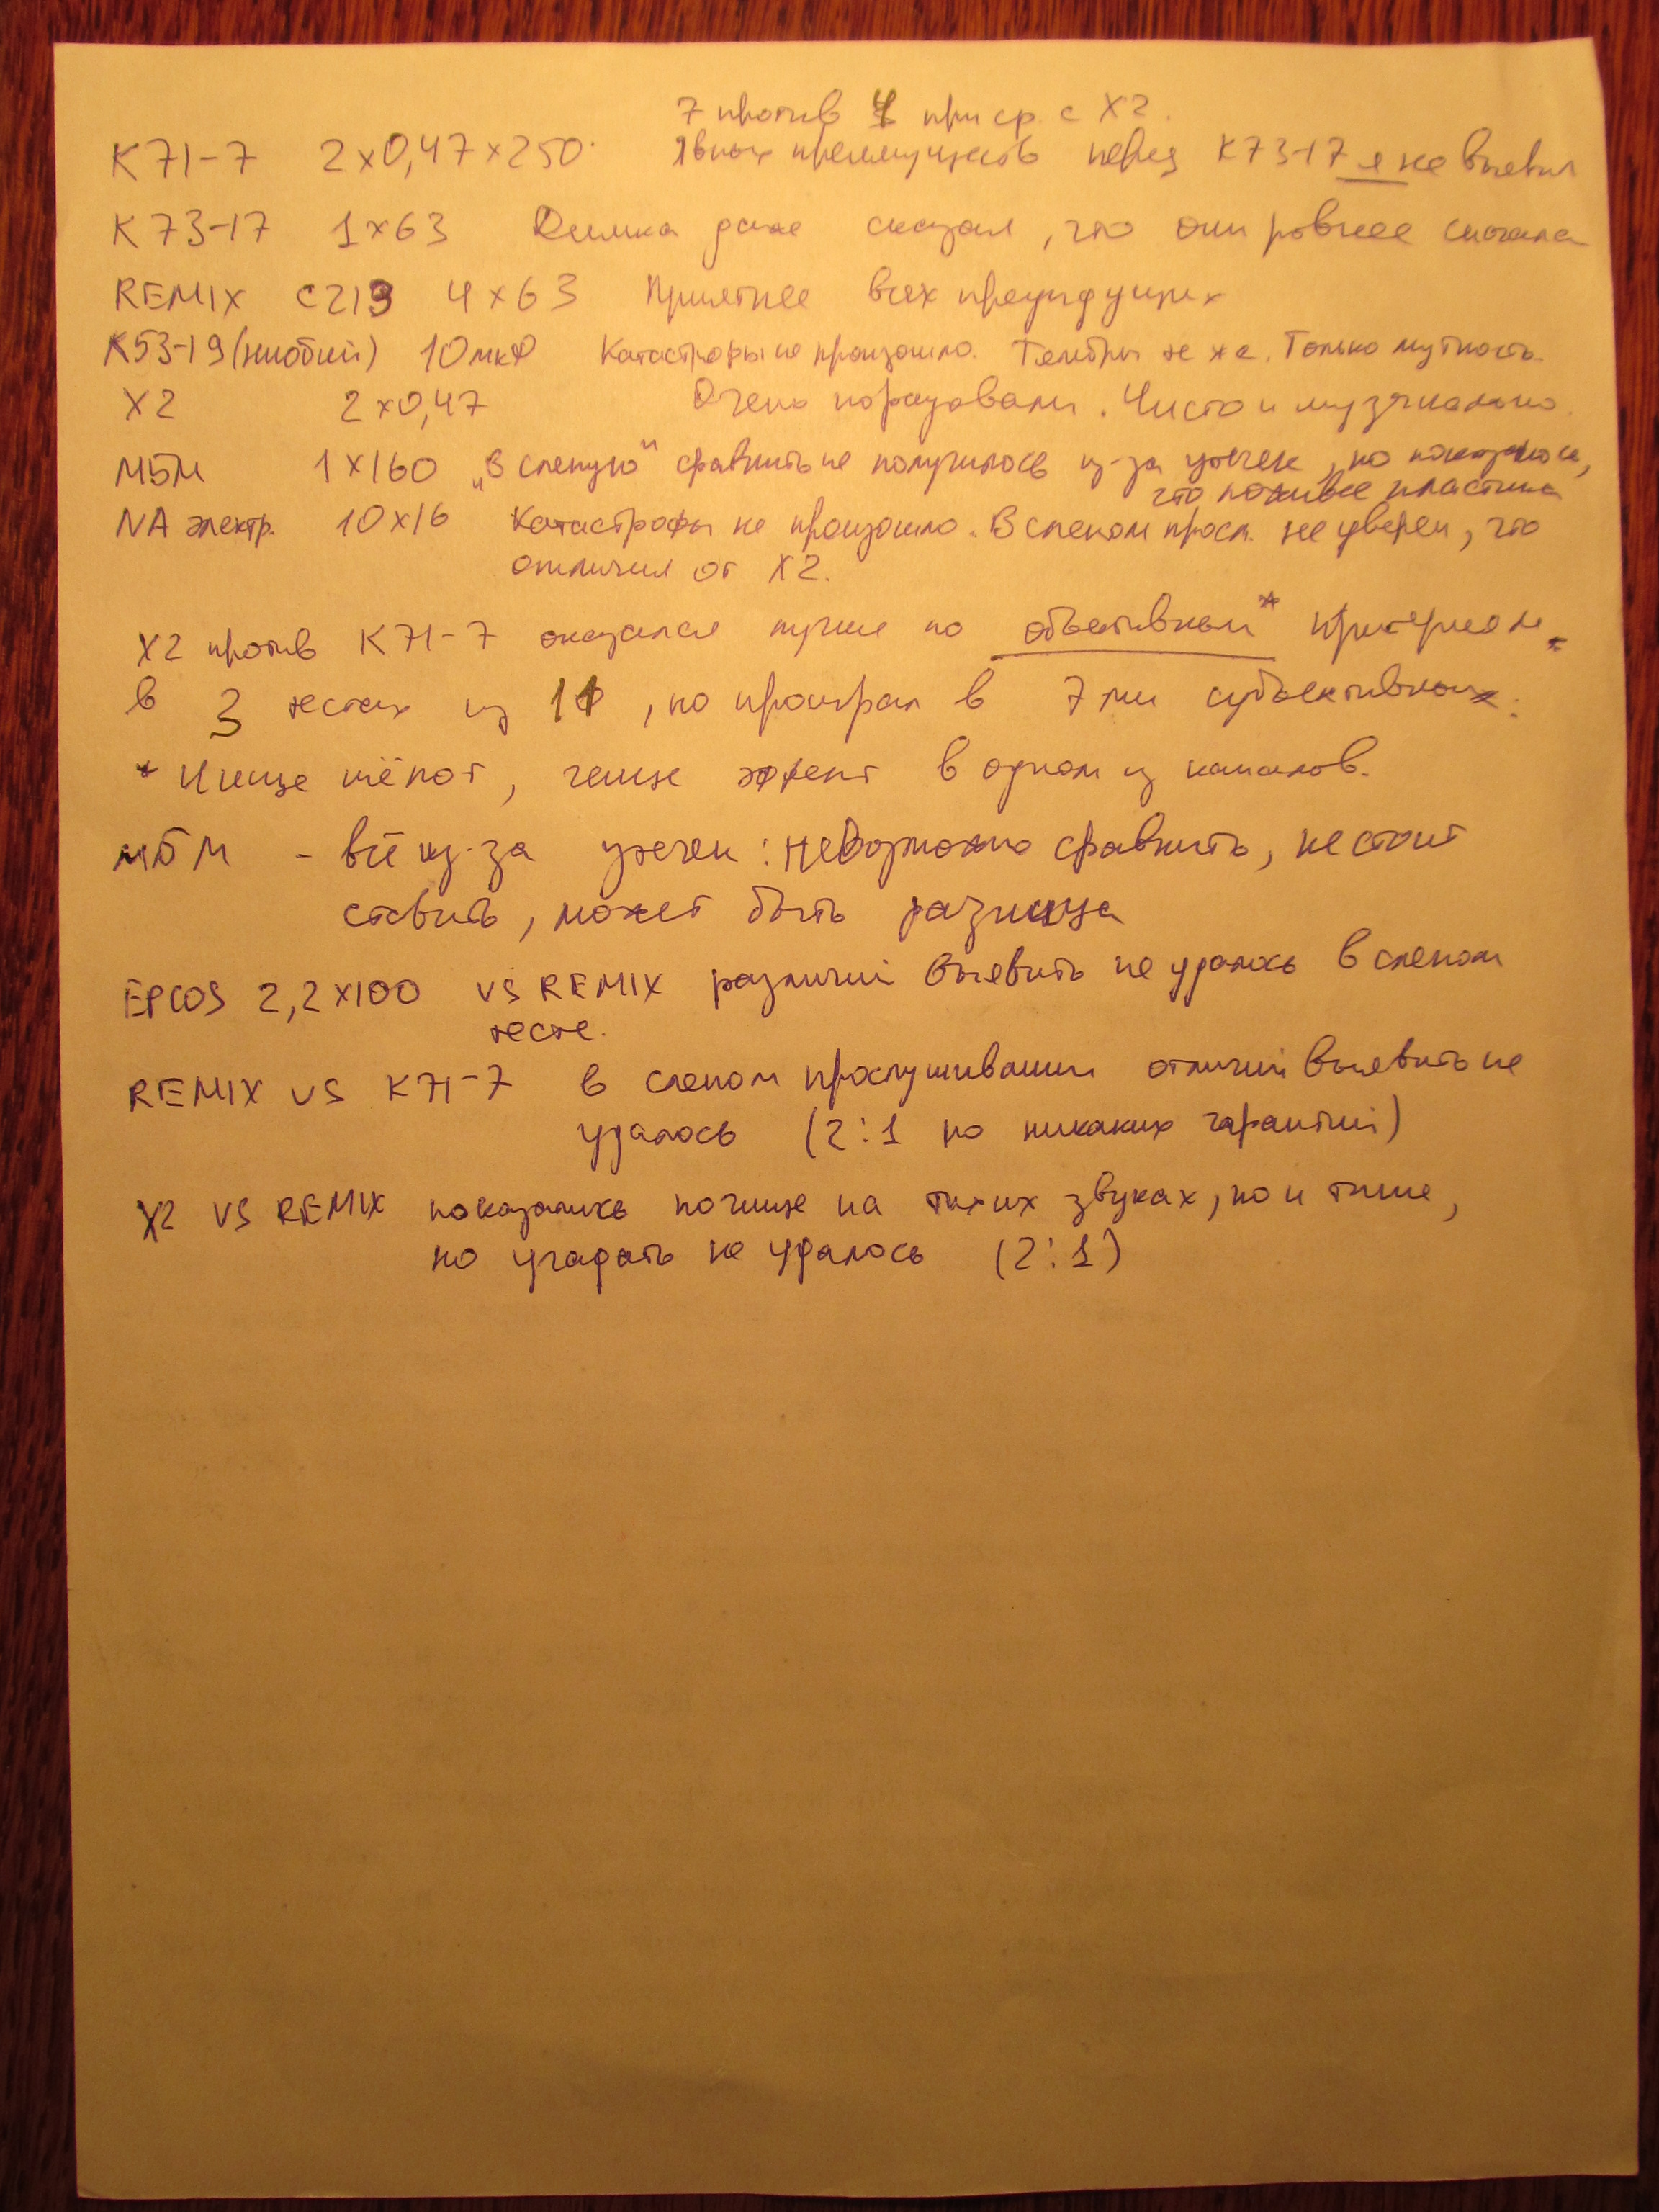 7 против 4 при ср. с X2.
К71-7 2x0,47x250. Явных преимуществ перед К73-17 я не выявил
К73-17 1x63 Димка даже сказал, что они ровнее сначала
REMIX C213 4x63 Приятнее всех предыдущих
К53-19(ниобий) 10мкФ Катастрофы не произошло. Тембры те же. Только мутность.
X2 2x0,47 Очень порадовали. Чисто и музыкально.
МБМ 1x160 „В слепую" сравнить не получилось из-за утечек, но показалось,
что поживее пластика
NA электр. 10x16 Катастрофы не произошло. В слепом просл. не уверен, что
отличил от X2.
X2 против К71-7 оказался лучше по объективным* критериям
в 3 тестах из 11, но проиграл в 7ми субъективных.
* Чище шёпот, чище эффект в одном из каналов.
МБМ - всё из-за утечек: невозможно сравнить, не стоит
ставить, может быть разница
EPCOS 2,2x100 VS REMIX различий выявить не удалось в слепом
тесте.
REMIX VS К71-7 в слепом прослушивании отличий выявить не
удалось (2:1 но никаких гарантий)
X2 VS REMIX показались почище на тихих звуках, но и тише,
но угадать не удалось (2:1)